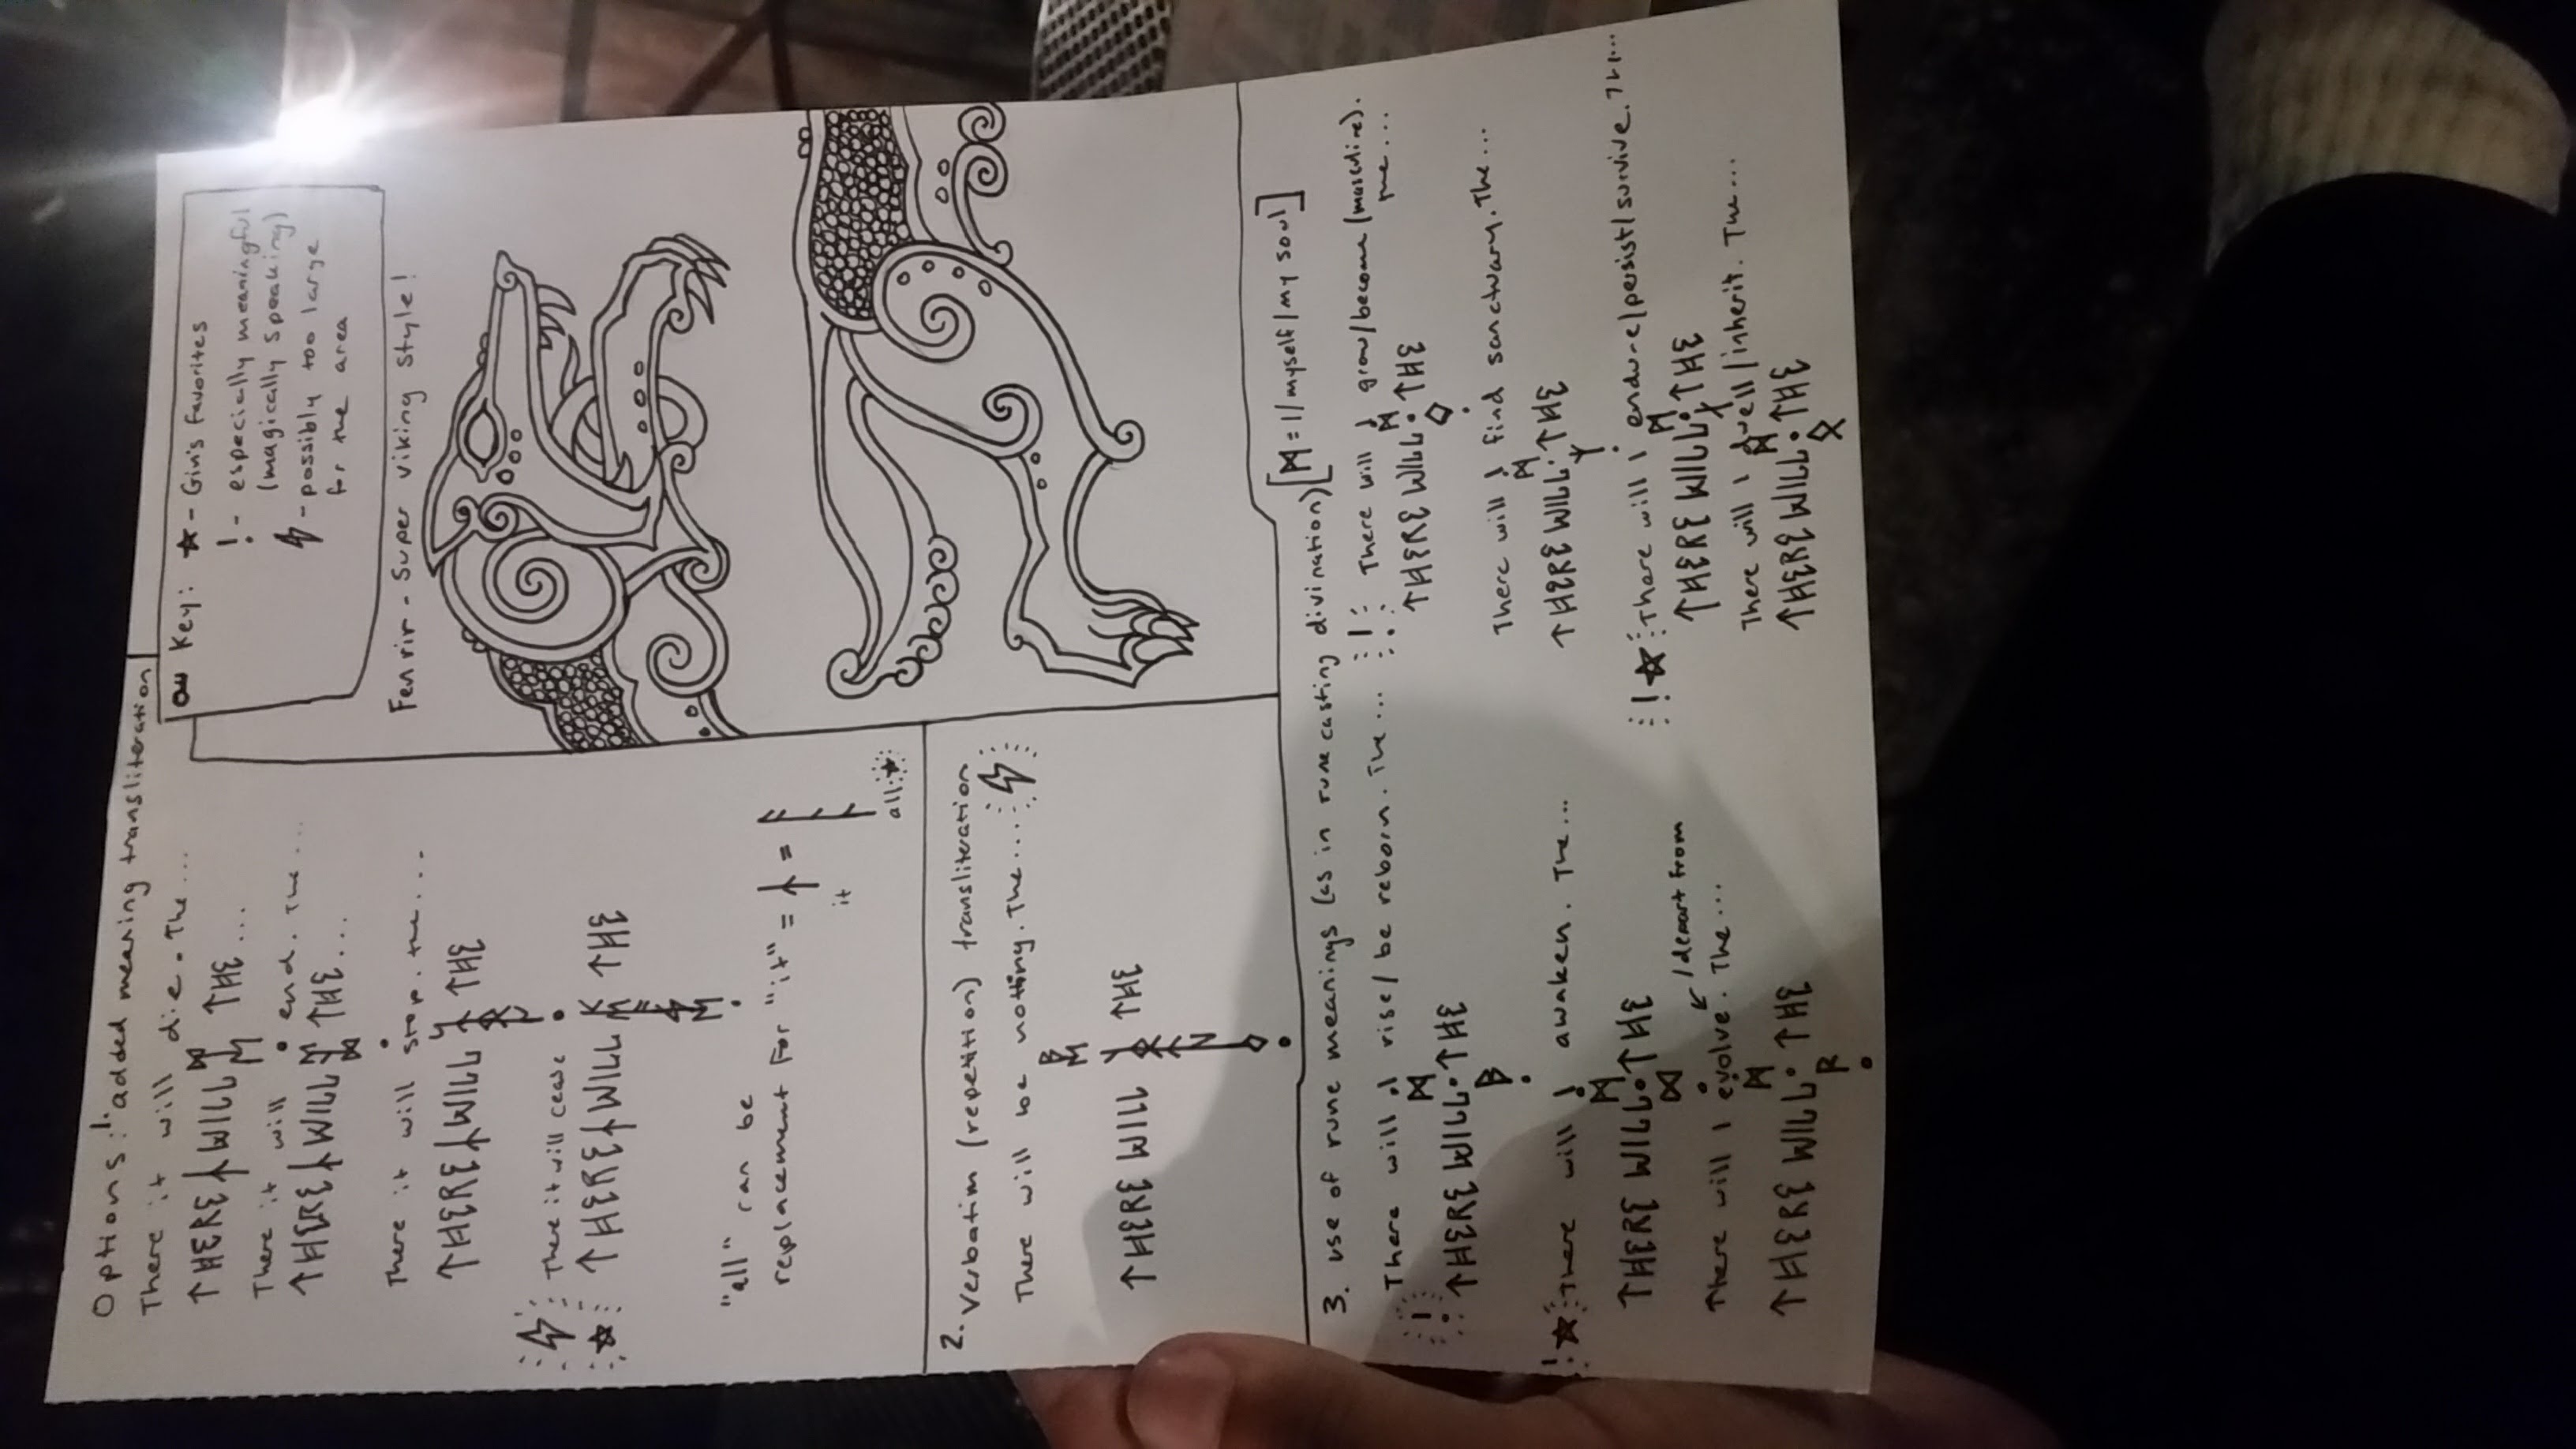 Options: 1. added meaning transliteration
There it will die. The...
↑HERE ᛅ WILL ᛞᛁᛖ ↑HE...
There it will end. The...
↑HERE ᛅ WILL ↑HE...
There it will stop. the...
↑HERE WILL ↑HE
There it will cease
↑HERE WILL ↑HE
"all" can be
replacement For "it" = =
it
all
Key: ☆ - Gin's Favorites
! - especially meaningful
(magically speaking)
- possibly too large
for the area
Fenrir - Super viking style!
2. Verbatim (repetition) transliteration
There will be nothing. The...
↑HERE WILL ↑HE
3. use of rune meanings (as in rune casting divination) [ᛗ = I/myself/my soul]
There will I rise/be reborn. The...
ᛗ
! ↑HERE WILL · ↑HE
ᛒ
! ☆ There will I awaken. The...
ᛗ
↑HERE WILL · ↑HE
ᛞ
/depart from
There will I evolve. The...
ᛗ
↑HERE WILL · ↑HE
ᚱ
! There will I grow/become (masculine).
The...
ᛗ
↑HERE WILL · ↑HE
ᛜ
There will I find sanctuary. The...
ᛗ
↑HERE WILL · ↑HE
ᛉ
! ☆ There will I endure/persist/survive. The...
ᛗ
↑HERE WILL ↑HE
There will I dwell/inherit. The...
ᛗ
↑HERE WILL · ↑HE
ᛟ